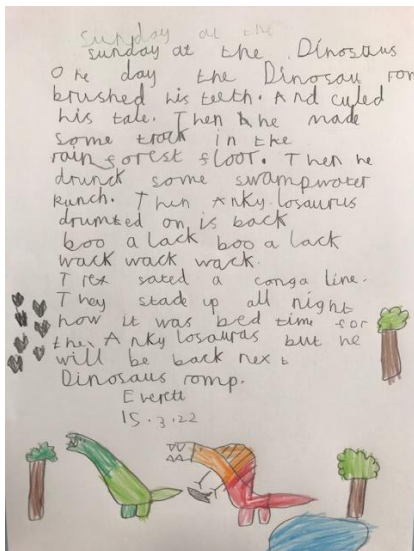 sunday at the
sunday at the Dinosaus
One day the Dinosau rom
brushed his teeth. And culed
his tale. Then he made
some track in the
rainforest floor. Then he
drunck some swampwater
Punch. Then Ankylosaurus
drumted on is back
boo a lack boo a lack
wack wack wack.
T rex sated a conga line.
They stade up all night
now it was bed time for
the Ankylosauras but he
will be back next
Dinosaus romp.
Everett
15.3.22